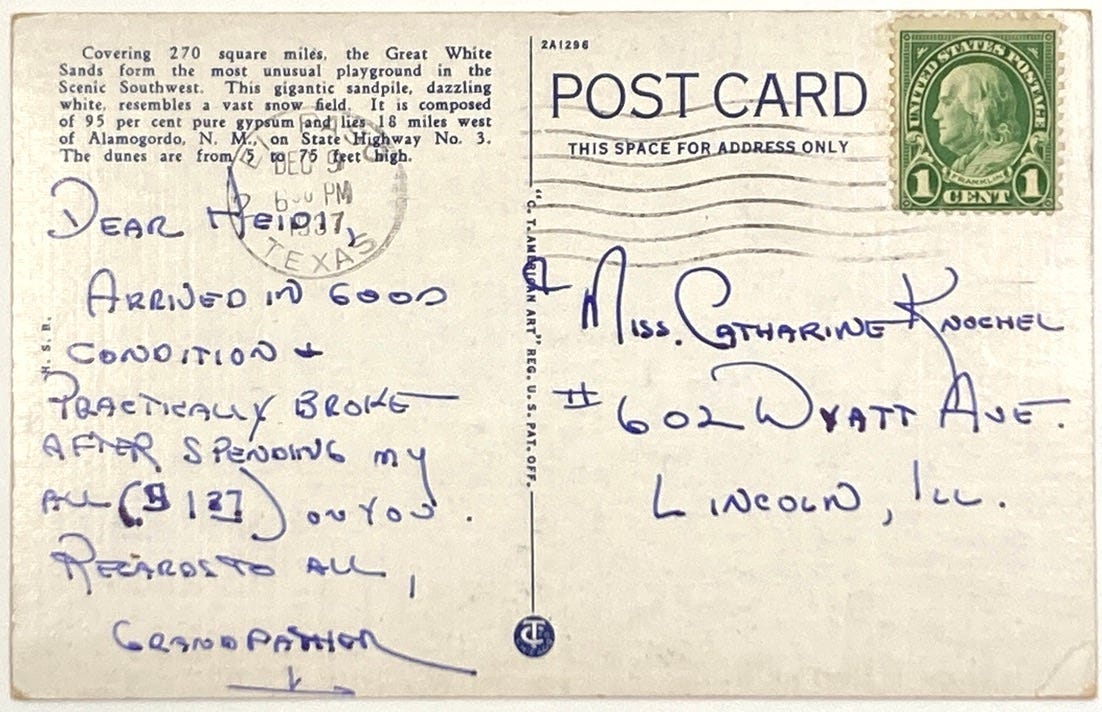 Covering 270 square miles, the Great White
Sands form the most unusual playground in the
Scenic Southwest. This gigantic sandpile, dazzling
white, resembles a vast snow field. It is composed
of 95 per cent pure gypsum and lies 18 miles west
of Alamogordo, N. M., on State Highway No. 3.
The dunes are from 5 to 75 feet high.
DEC
PM
1937
TEXAS
DEAR
ARRIVED IN GOOD
CONDITION &
PRACTICALLY BROKE
AFTER SPENDING MY
ALL ( ) ON YOU.
REGARDS TO ALL,
GRANDFATHER
H. S. B.
2A1296
POST CARD
THIS SPACE FOR ADDRESS ONLY
"C. T. AMERICAN ART" REG. U. S. PAT. OFF.
UNITED STATES POSTAGE
FRANKLIN
1 CENT 1
MISS. CATHARINE KNOCHEL
# 602 WYATT AVE.
LINCOLN, ILL.
CT